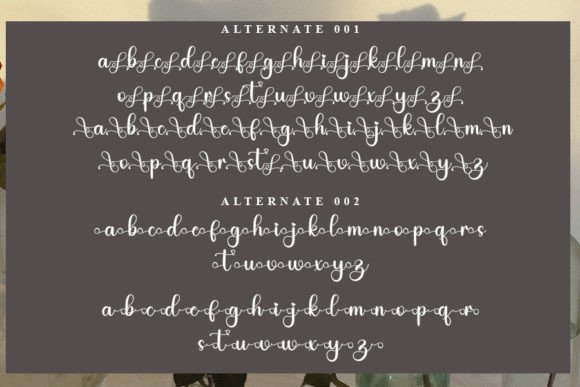 ALTERNATE 001
abcdefghijklmn
opqrstuvwxyz
abcdefghijklmn
opqrstuvwxyz
ALTERNATE 002
abcdefghijklmnopqrs
tuvwxyz
abcdefghijklmnopqr
stuvwxyz